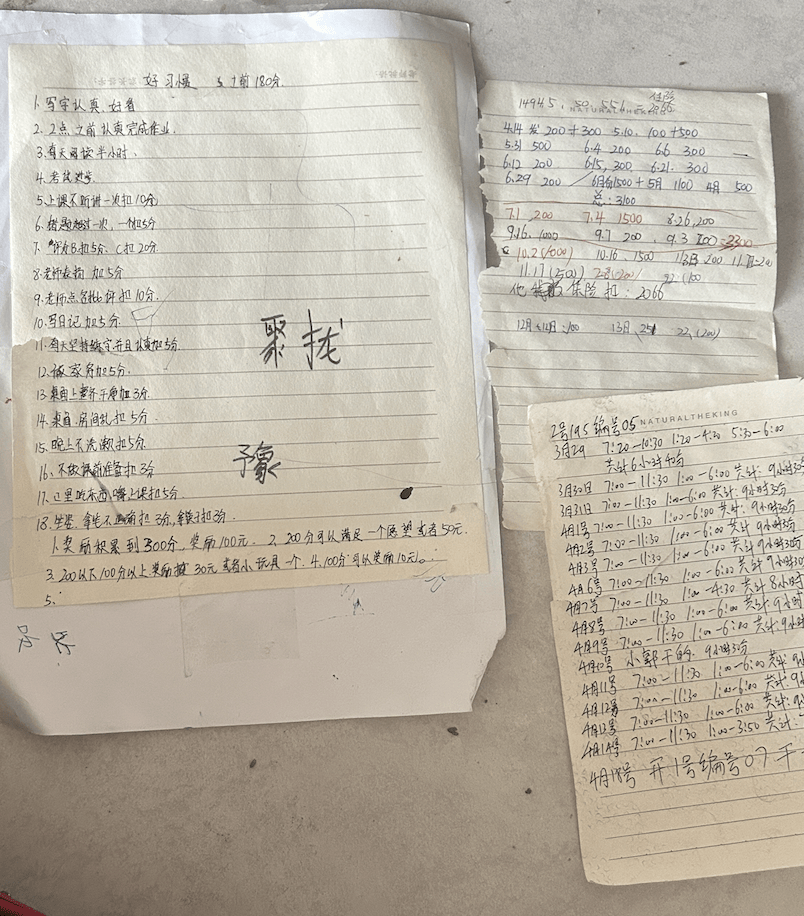 好习惯 以前180分
1. 写字认真,好看
2. 2点之前认真完成作业.
3. 每天阅读半小时.
4. 考试进步
5. 上课不听讲一次扣10分
6. 错题超过一次,一他扣5分
7. 评为B扣5分、C扣20分.
8. 老师表扬 加5分
9. 老师点名批评扣10分.
10. 写日记加5分.
11. 每天坚持练字并且认真加5分.
12. 做家务加5分.
13. 桌面上整齐干净加3分.
14. 桌面,房间乱扣5分.
15. 晚上不洗漱扣5分.
16. 不做课前准备扣3分
聚拢
予象
18. 坐姿、拿笔不正确扣3分,
1. 奖励积累到300分,奖励100元. 2. 200分可以满足一个愿望或者50元.
3. 200以下100分以上奖励 30元或者小玩具一个. 4. 100分可以奖励10元.
5.
保险
4.14 发 200+300 5.10. 100+500
5.31 500 6.4 200 6.6 300
6.12 200 6.15, 300 6.21. 300
6.29 200 6月份1500+5月 1100 4月 500
总:3100
7.1 200 7.4 1500 8.26,200
9.16. 1000 9.7 200. 9.3
10.2(1000) 10.16. 1500
11.17(500)
他 保险扣:2066
13日
2号195 编号05 NATURALTHEKING
3月29 7:20-10:30 1:20-4:20 5:30-6:00
共计6小时40分
3月30日 7:00-11:30 1:00-6:00 共计:9小时30分
3月31日 7:00-11:30 1:00-6:00 共计:9小时30分
4月1号 7:00-11:30 1:00-6:00 共计:9小时30分
4月2号 7:00-11:30 1:00-6:00 共计:9小时30分
4月3号 7:00-11:30 1:00-6:00 共计:9小时30分
4月6号 7:00-11:30 1:00-6:00 共计9小时30
4月7号 7:00-11:30 1:00-4:30 共计8小时
4月8号 7:00-11:30 1:00-6:00 共计:9小时
4月9号 7:00-11:30 1:00-6:00 共计:9小时
4月10号 小郭干的. 9小时30分
4月11号 7:00-11:30 1:00-6:00 共计9
4月12号 7:00-11:30 1:00-6:00 共计9
4月13号 7:00-11:30 1:00-6:00 共计:9
4月14号 7:00-11:30 1:00-3:50 共计:
4月18号 开1号编号07 干